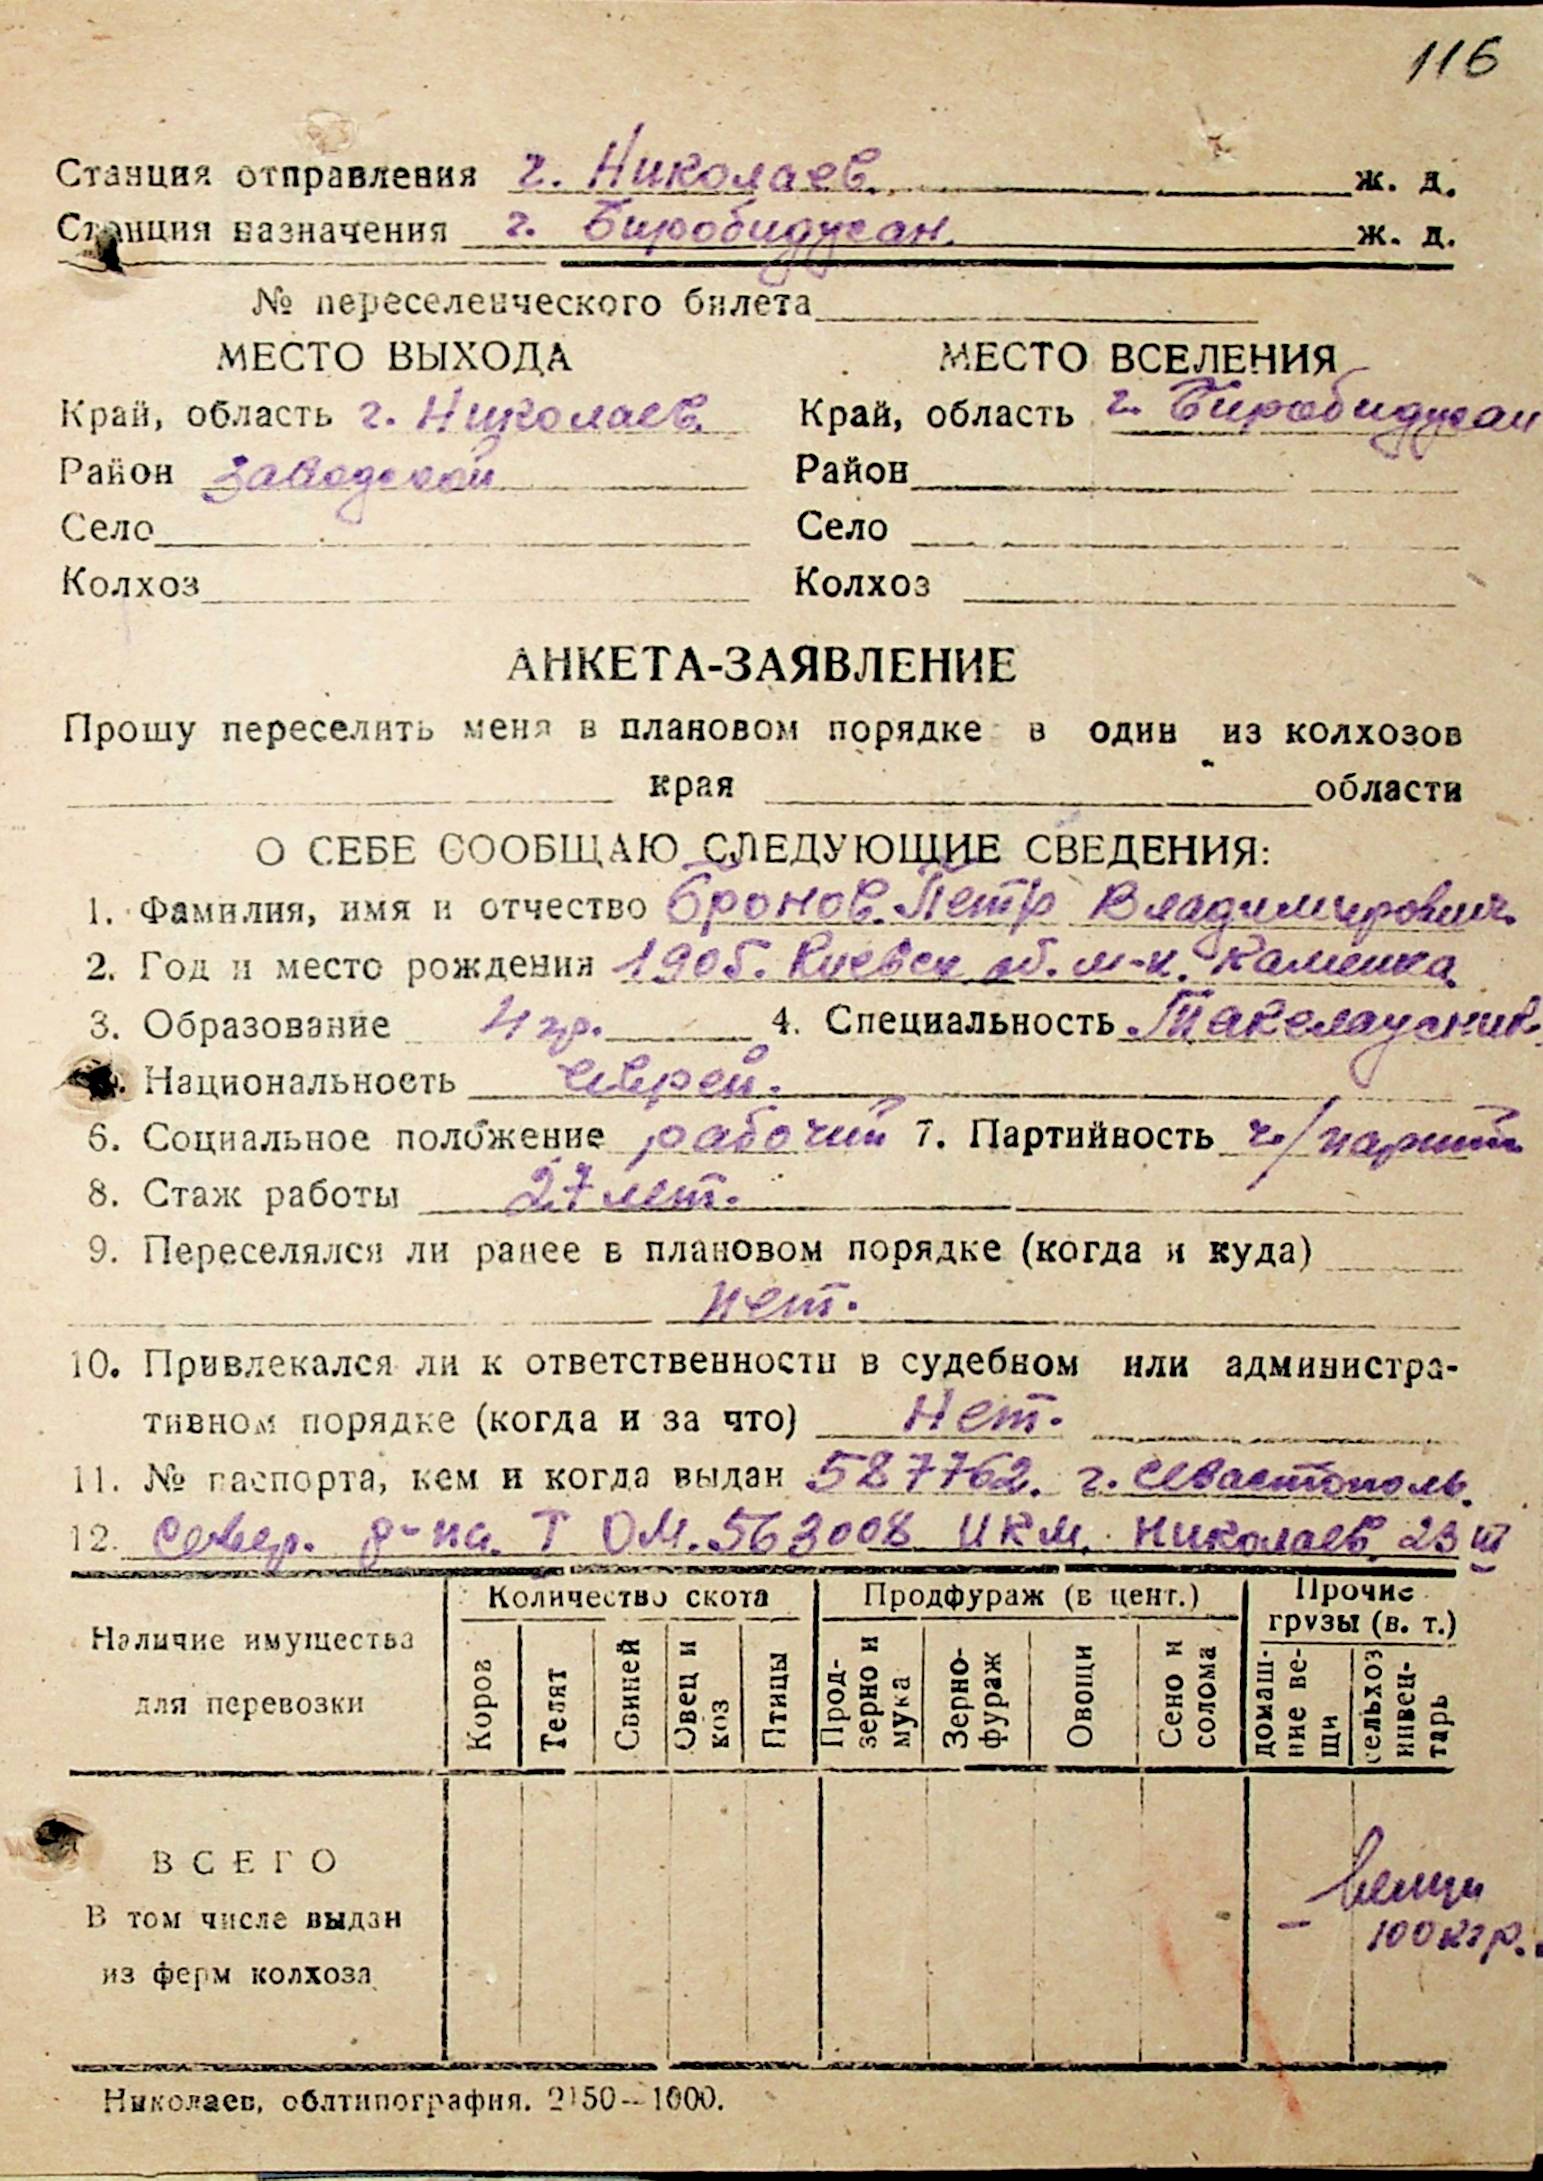 116
Станция отправления г. Николаев. ж. д.
Станция назначения г. Биробиджан. ж. д.
№ переселенческого билета
МЕСТО ВЫХОДА МЕСТО ВСЕЛЕНИЯ
Край, область г. Николаев. Край, область г. Биробиджан
Район Заводской Район
Село Село
Колхоз Колхоз
АНКЕТА-ЗАЯВЛЕНИЕ
Прошу переселить меня в плановом порядке в один из колхозов
края области
О СЕБЕ СООБЩАЮ СЛЕДУЮЩИЕ СВЕДЕНИЯ:
1. Фамилия, имя и отчество Бронов. Петр Владимирович
2. Год и место рождения 1905. Киевск об. м-к. Каменка
3. Образование 4 гр. 4. Специальность Такелажник.
Национальность еврей.
6. Социальное положение рабочий 7. Партийность
8. Стаж работы 27 лет.
9. Переселялся ли ранее в плановом порядке (когда и куда)
нет.
10. Привлекался ли к ответственности в судебном или администра-
тивном порядке (когда и за что) Нет.
11. № паспорта, кем и когда выдан 587762. г. Севастополь.
12. ОМ. 563008 Николаев. 23 III
Наличие имущества для перевозки
Количество скота Продфураж (в цент.) Прочие грузы (в. т.)
Коров Телят Свиней Овец и коз Птицы Прод-зерно и мука Зерно-фураж Овощи Сено и солома домаш-ние ве-щи сельхоз инвен-тарь
ВСЕГО
В том числе выдан
из ферм колхоза
вещи
– 100 кгр.
Николаев, облтипография. 2150—1000.